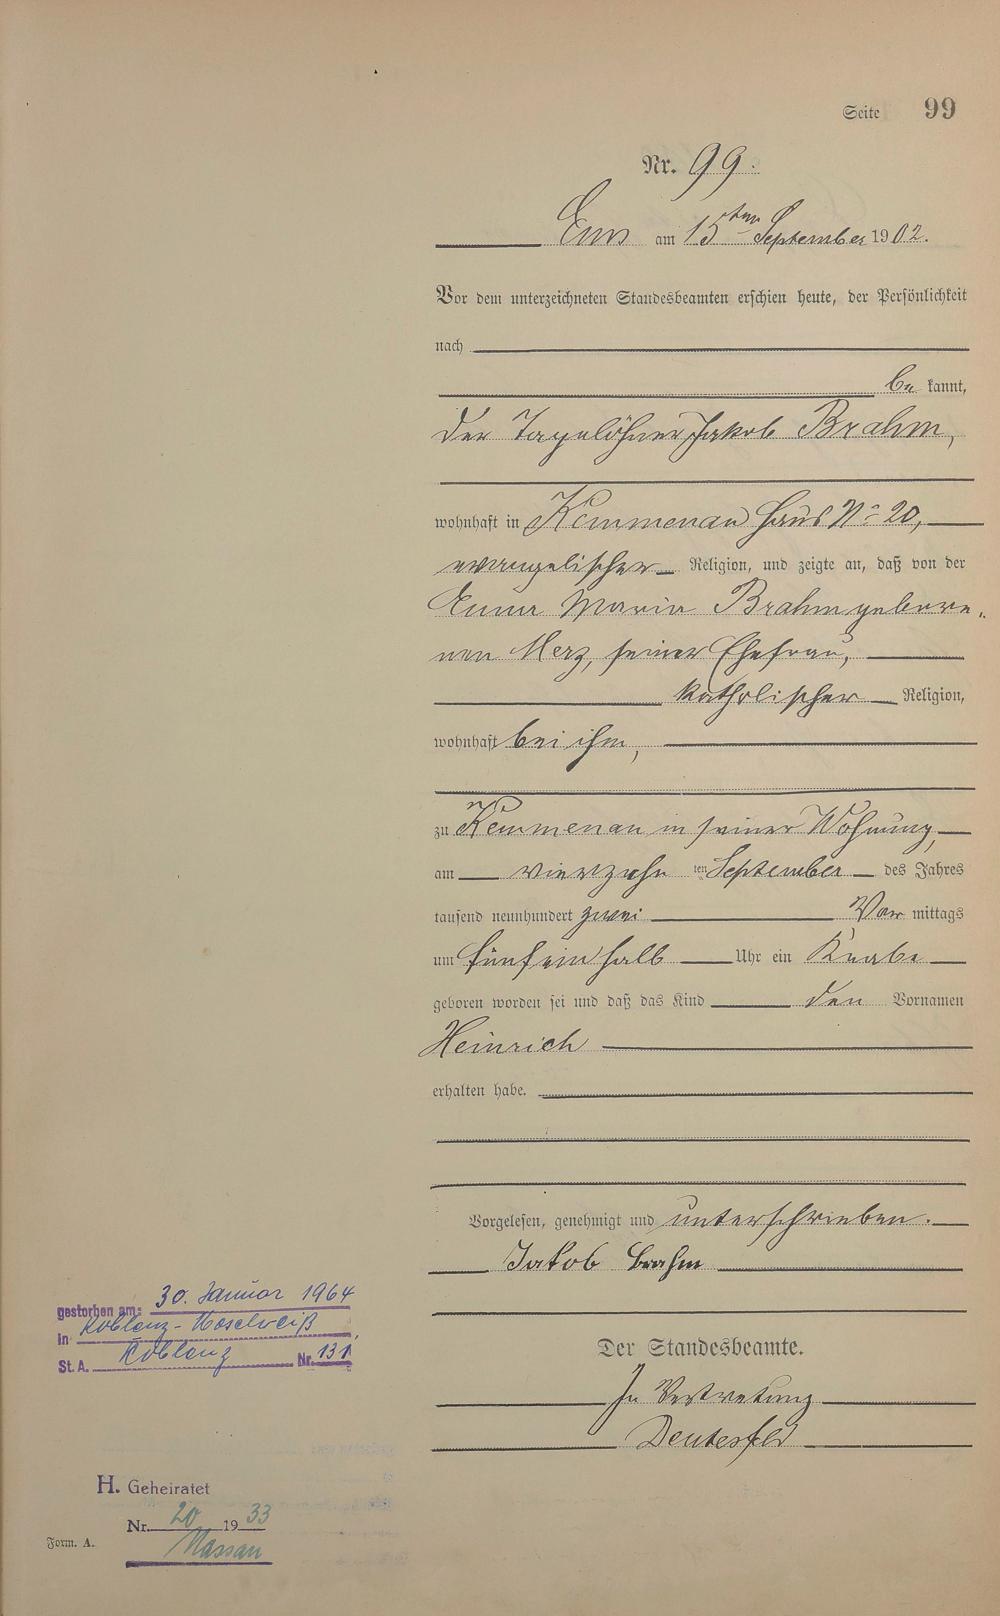 Seite 99
Nr. 99.
Ems am 15ten September 1902.
Vor dem unterzeichneten Standesbeamten erschien heute, der Persönlichkeit
nach
be kannt,
der Tagelöhner Jakob Brahm,
wohnhaft in Kemmenau Haus No 20,
evangelischer Religion, und zeigte an, daß von der
Anna Maria Brahm gebore-
nen Merz, seiner Ehefrau,
katholischer Religion,
wohnhaft bei ihm,
zu Kemmenau in seiner Wohnung,
am vierzehn ten September des Jahres
tausend neunhundert zwei Vor mittags
um fünfeinhalb Uhr ein Knabe
geboren worden sei und daß das Kind den Vornamen
Heinrich
erhalten habe.
Vorgelesen, genehmigt und unterschrieben.
Jakob Brahm
Der Standesbeamte.
In Vertretung
gestorben am: 30. Januar 1964
in Koblenz-Moselweiß
St. A. Koblenz Nr. 131
H. Geheiratet
Nr. 20 1933
Nassau
Form. A.